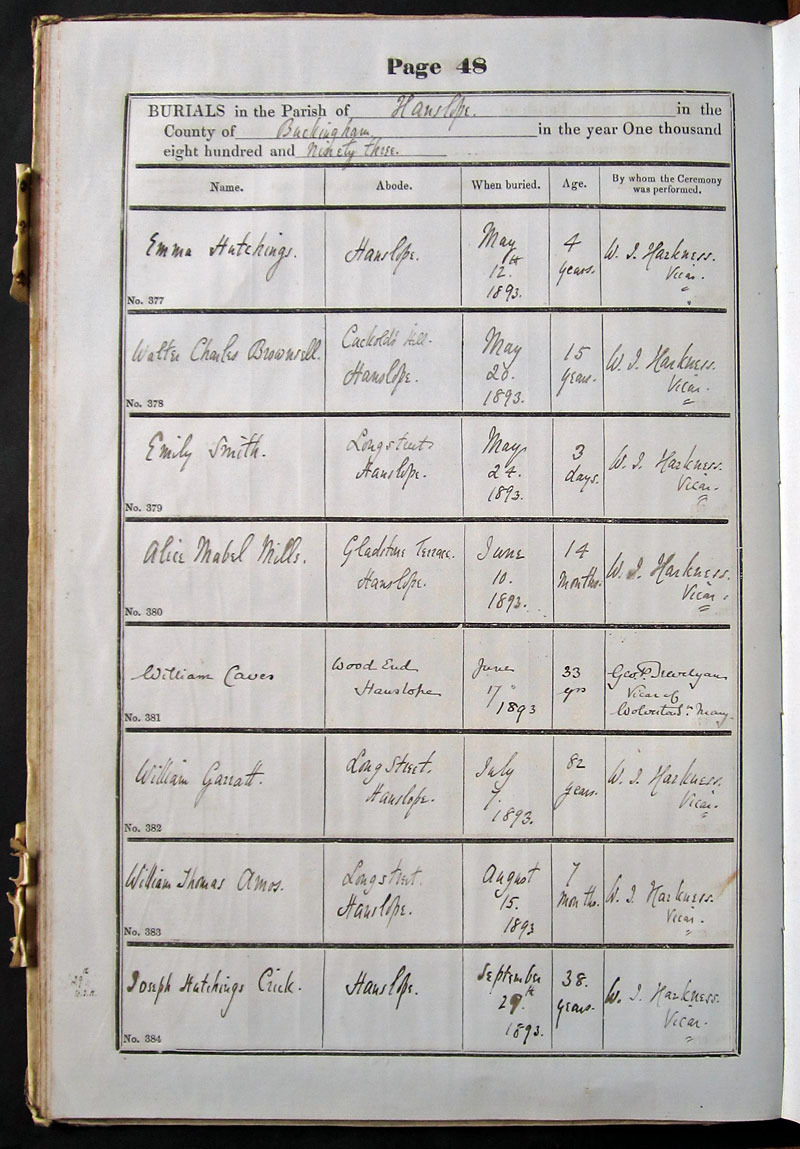 Page 48
BURIALS in the Parish of Hanslope. in the
County of Buckingham in the year One thousand
eight hundred and Ninety three.
Name. Abode. When buried. Age. By whom the Ceremony was performed.
Emma Hutchings. Hanslope. May 12th. 1893. 4 years. W. J. Harkness. Vicar.
No. 377
Walter Charles Brownsell. Cuckold's Hill. Hanslope. May 20. 1893. 15 years. W. J. Harkness. Vicar.
No. 378
Emily Smith. Longstreet Hanslope. May 24. 1893. 3 days. W. J. Harkness. Vicar.
No. 379
Alice Mabel Mills. Gladstone Terrace. Hanslope. June 10. 1893. 14 Months. W. J. Harkness. Vicar.
No. 380
William Caves Wood End Hanslope June 17 1893 33 yrs Geo. P. Trevelyan Vicar of Wolverton St. Mary.
No. 381
William Garratt. Long Street. Hanslope. July 7. 1893. 82 years. W. J. Harkness. Vicar.
No. 382
William Thomas Amos. Longstreet. Hanslope. August 15. 1893 7 Months. W. J. Harkness. Vicar.
No. 383
Joseph Hutchings Crick. Hanslope. September 29th. 1893. 38. years. W. J. Harkness. Vicar.
No. 384